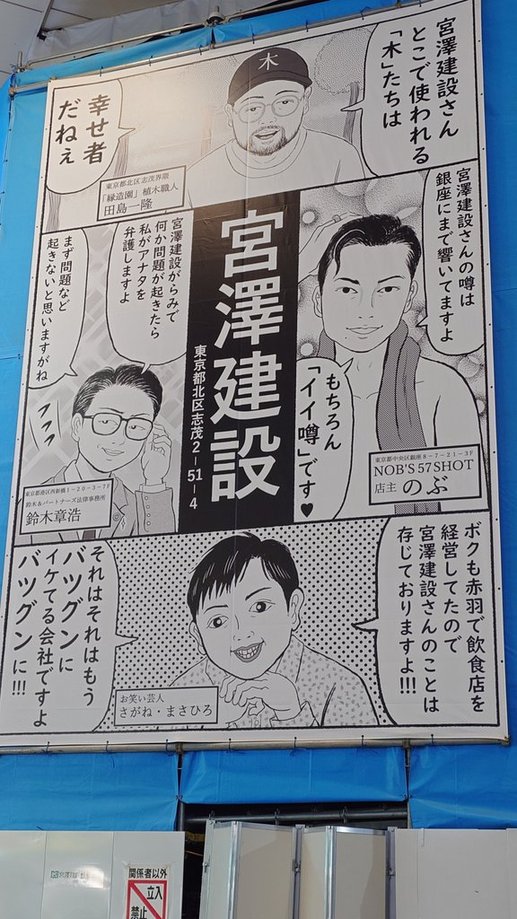 宮澤建設さん
とこで使われる
「木」たちは
木
幸せ者
だねぇ
東京都北区志茂界隈
「縁造園」植木職人
田島一隆
宮澤建設さんの噂は
銀座にまで響いてますよ
もちろん
「イイ噂」です♥
東京都中央区銀座8-7-21-3F
NOB'S 57SHOT
店主 のぶ
宮澤建設
東京都北区志茂2-51-4
宮澤建設がらみで
何か問題が起きたら
私がアナタを
弁護しますよ
まず問題など
起きないと思いますがね
フフフ
東京都港区西新橋1-20-3-7F
鈴木&パートナーズ法律事務所
鈴木章浩
ボクも赤羽で飲食店を
経営してたので
宮澤建設さんのことは
存じておりますよ!!!
それはそれはもう
バツグンに
イケてる会社ですよ
バツグンに!!!
お笑い芸人
さがね・まさひろ
関係者以外
立入
禁止